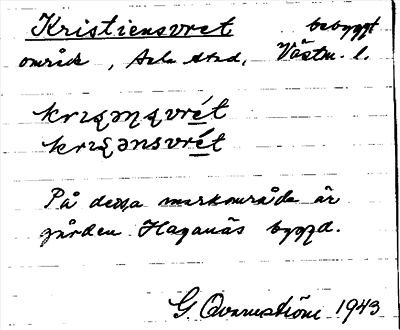 Kristiensvret bebyggt
område, Sala stad, Västm. l.
krıʂəɳʂvrét
krıʂənsvrét
På dessa markområde är
gården Haganäs byggd.
G. Qvarnström 1943